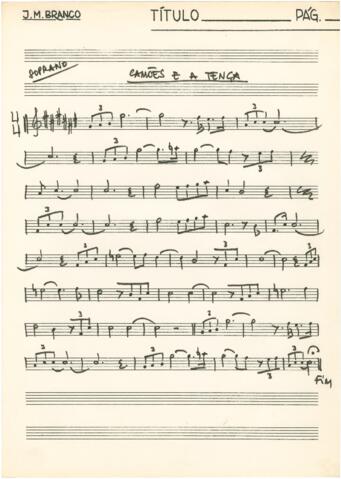 J.M.BRANCO TÍTULO PÁG.
SOPRANO
CAMÕES E A TENÇA
4
4
3 3
3 3
3 3
3 3
3
3
3
3 3 3
FIM